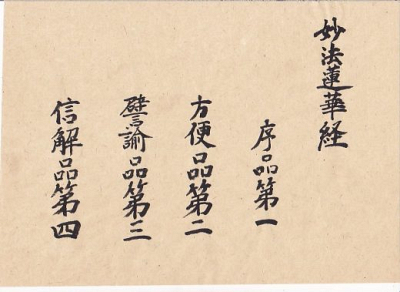 妙法蓮華経
序品第一
方便品第二
譬諭品第三
信解品第四